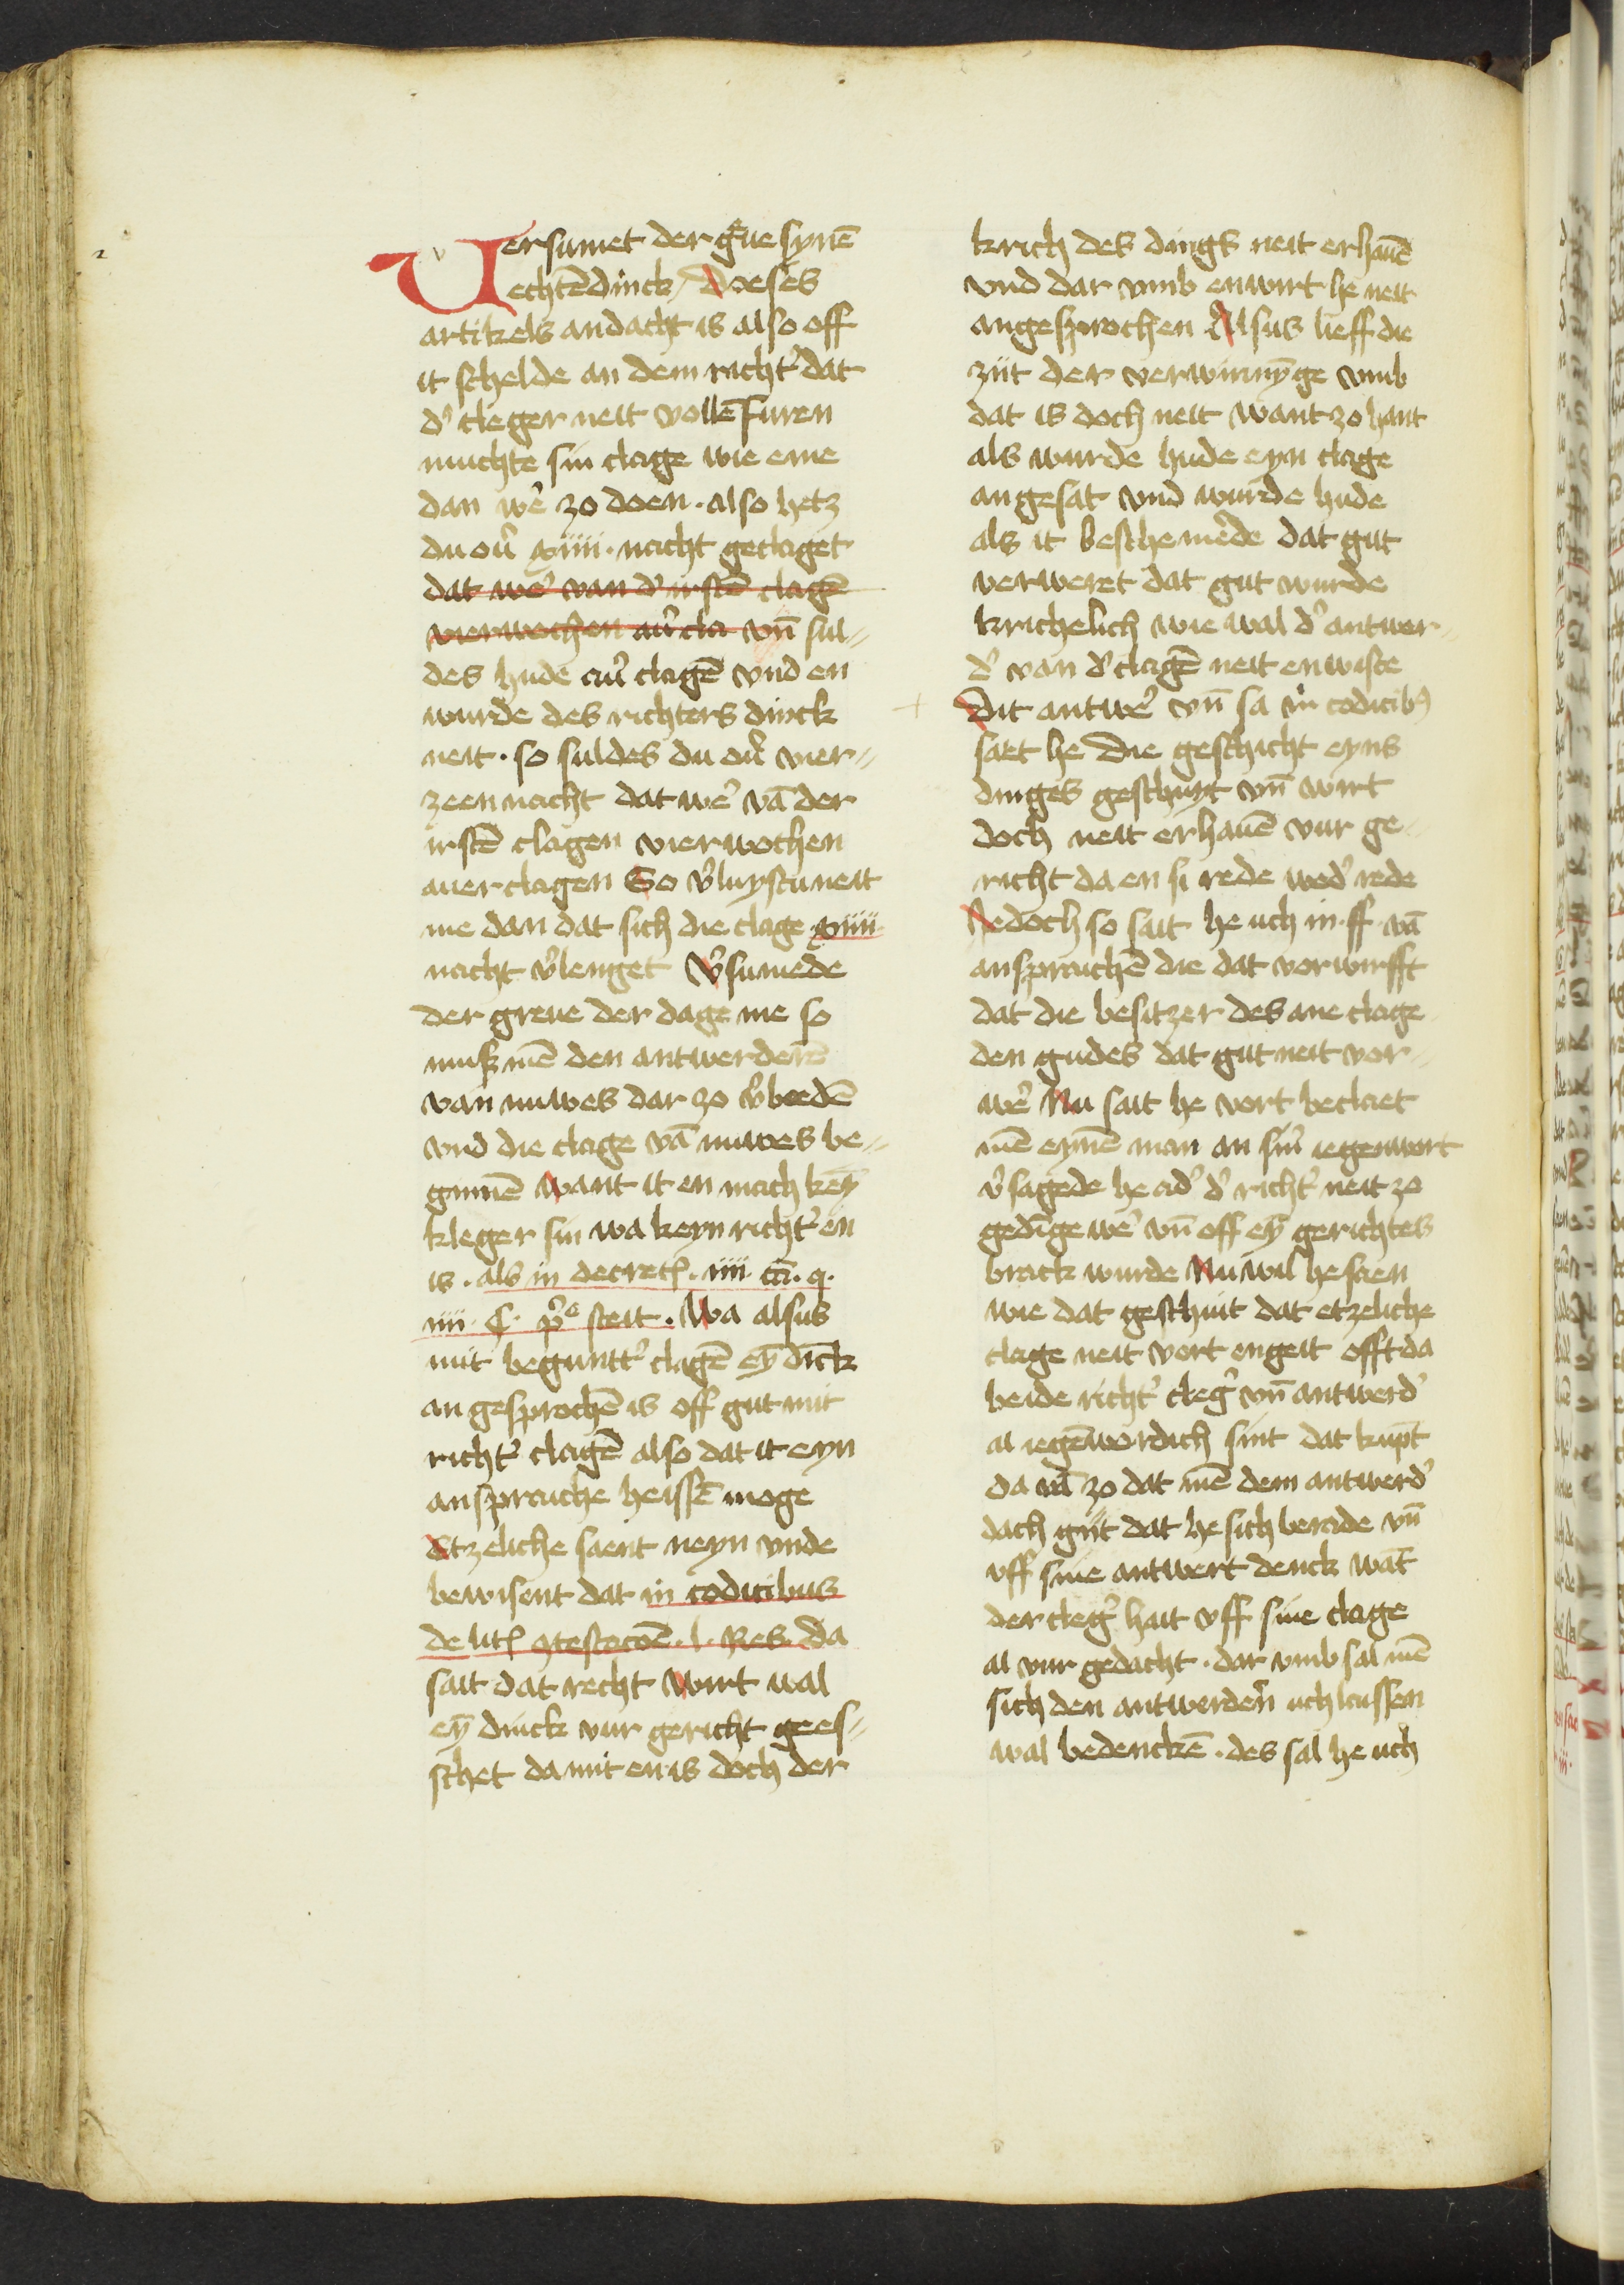 Uersumet der g̾ue synē
echtēdinck / Doeses
artikels andacht is also off
it schelde an dem richt̾ dat
d̾ cleger neit vollēfuren
muchte sin clage wie eme
dan we̾ zo doen · also hetz
du ou̾ xiiii · nacht geclaget
dat we̾ van d̾ irstē clagē
vierwochen au̾ cla vn̄ sul-
des hude au̾ clagē vnd en
wurde des richters dinck
neit · so suldes du ou̾ vier-
zeen nacht dat we̾ vā der
irstē clagen vierwochen
auer clagen So v̾luystu neit
me dan dat sich die clage xiiii
nacht v̾lenget V̾sumede
der greue der dage me so
mus mē den antwerderē
van nuwes dar zo v̾bodē
vnd die clage vā nuwes be-
gunnē want it en mach keȳ
kleger sin wa keyn richt̾ en
is · als in decret̾ · iiii · cā · q ·
iiii · C · p̾o steit · Wa alsus
mit begunt̾ clagē eȳ dīck
an gesprochē is off gut mit
richt̾ clagē also dat it eyn
ansprache heissē moge
Etzeliche saent neyn vnde
bewisent dat in codicibus
de lit̾ 9testacōe · l · Res · da
sait dat recht wirt wal
eȳ dinck vur gericht gees-
schet da mit en is doch der
krich des dings neit erhauē
vnd dar vmb enwirt he neit
angesprochen Alsus lieff die
ziit der verwinnȳge vmb
dat is doch neit want zo hant
als wurde hude eyn clage
angesat vnd wurde hude
als it beschemēde dat gut
verweret dat gut wurde
krichelich wie wal d̾ antwer-
d̾ van d̾ clagē neit enwiste
Dit antwe̾ vn̄ sa in codicib9
sait he die geschicht eyns
dinges geschuyt vn̄ wirt
doch neit erhauē vur ge-
richt da en si rede wed̾ rede
Jedoch so sait he uch in · ff · vā
ansprachē die dat verwirfft
dat die besitzer des ane clage
den gudes dat gut neit ver-
we̾ Nu sait he vort beclaet
mē eynē man an sin̾ iegenwort
v̾sagede he ad̾ d̾ richt̾ neit zo
gedīge we̾ vn̄ off eȳ gerichtes
brack wurde Nu wil he saen
wie dat geschuit dat etzeliche
clage neit vort engeit offt da
beide richt̾ cleg̾ vn̄ antwerd̾
al iegēwordich sint dat kūpt
da vā zo dat mē dem antwerd̾
dach giit dat he sich berade vn̄
vff sine antwert denck wāt
der cleg̾ hait vff sine clage
al vur gedacht · dar vmb sal mē
sich den antwerder̄ uch laissen
wal bedenckē · des sal he uch